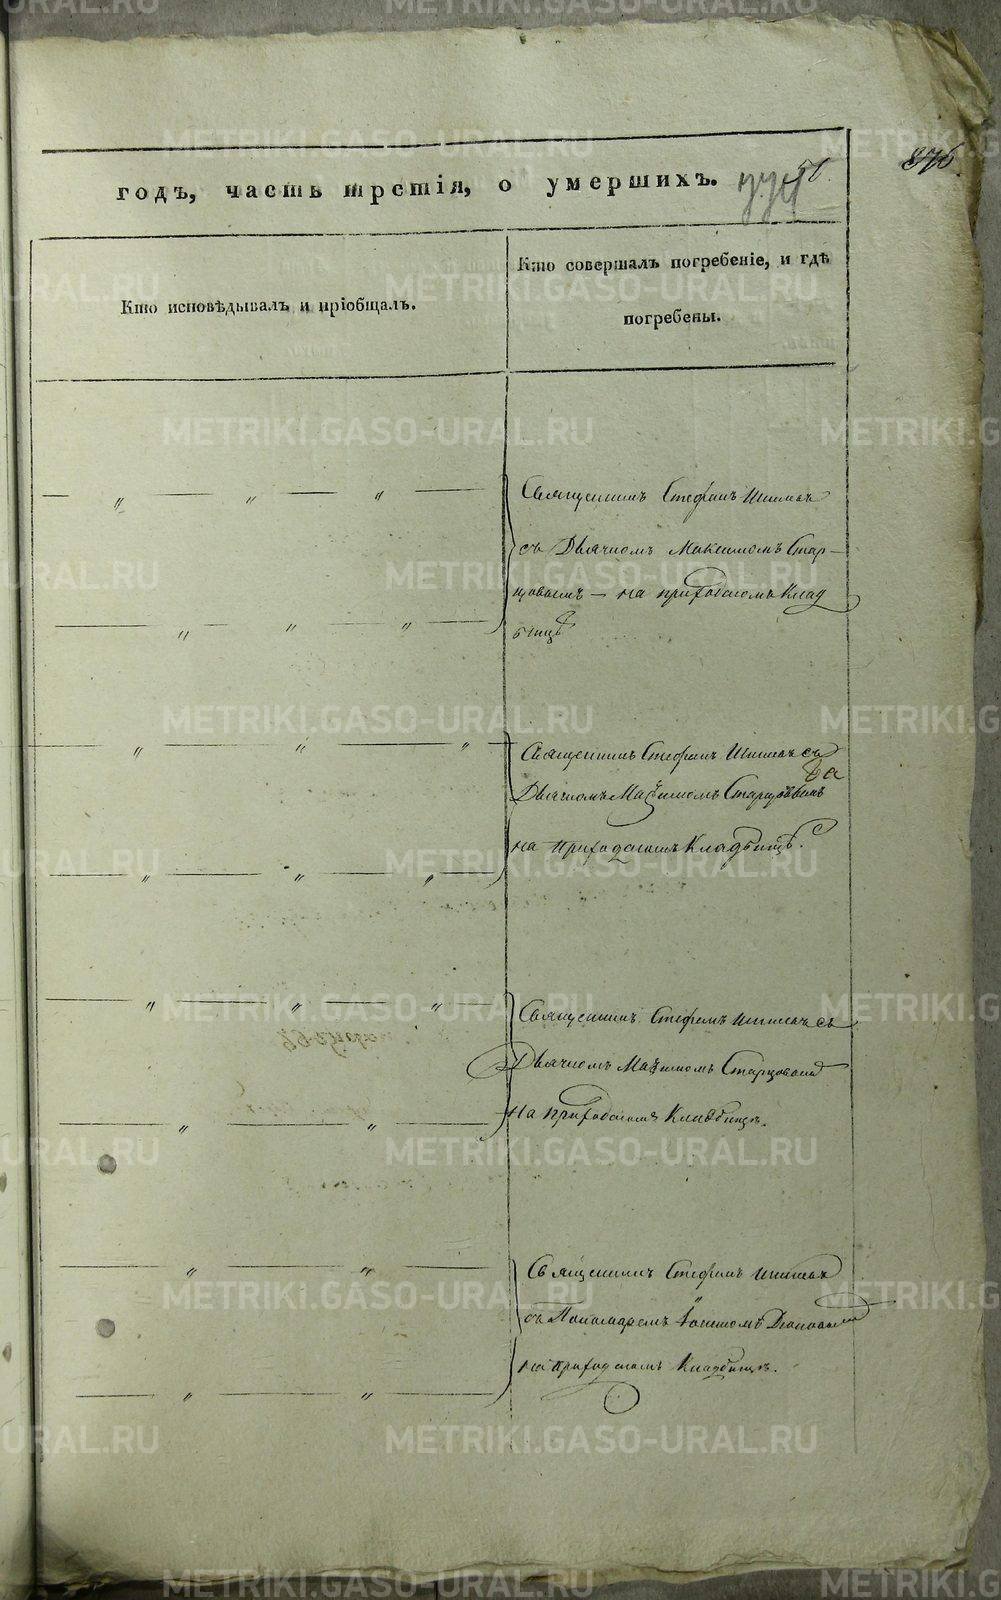 годъ, часть третія, о умершихъ.
51.
876.
Кто исповѣдывалъ и пріобщалъ.
Кто совершалъ погребеніе, и гдѣ
погребены.
Священникъ Стефанъ
съ Дьячкомъ Максимомъ Стар-
цовымъ – на приходскомъ Клад
бищѣ
Священникъ Стефанъ съ
Дьячкомъ Маѯимомъ Старцовымъ
на приходскомъ Кладбищѣ.
Священникъ Стефанъ съ
Дьячкомъ Маѯимомъ Старцовымъ
на приходскомъ Кладбищѣ.
Священникъ Стефанъ
съ Пономаремъ
на приходскомъ Кладбищѣ.
METRIKI.GASO-URAL.RU